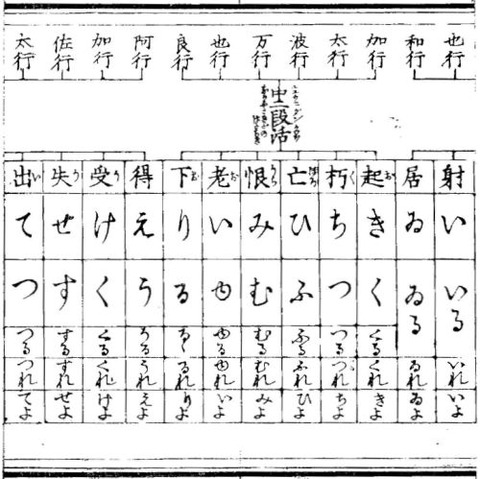 也行
和行
加行
太行
波行
万行
也行
良行
阿行
加行
佐行
太行
中二段活
射 い いる いれ いよ
居 ゐ ゐる ゐれ ゐよ
起 き く くる くれ きよ
朽 ち つ つる つれ ちよ
亡 ひ ふ ふる ふれ ひよ
恨 み む むる むれ みよ
老 い ゆ ゆる ゆれ いよ
下 り る るゝ るれ りよ
得 え う うる うれ えよ
受 け く くる くれ けよ
失 せ す する すれ せよ
出 て つ つる つれ てよ